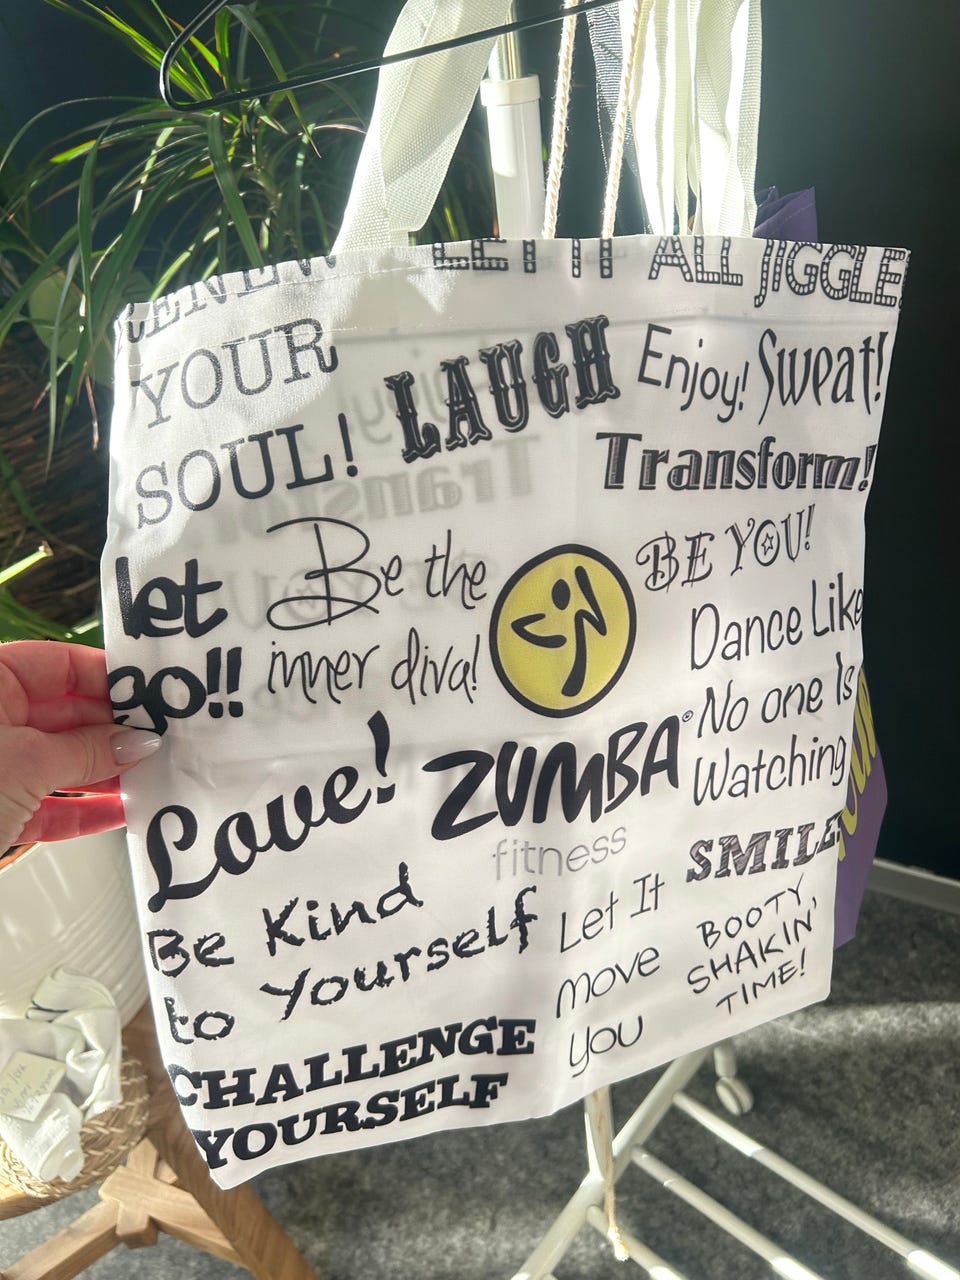 RENEW
YOUR
SOUL!
LET IT ALL JIGGLE!
LAUGH
Enjoy! Sweat!
Transform!
let
go!!
Be the
inner diva!
BE YOU!
Dance Like
No one Is
Watching
Love!
ZUMBA®
fitness
SMILE!
Be Kind
to Yourself
Let It
move
you
BOOTY,
SHAKIN'
TIME!
CHALLENGE
YOURSELF